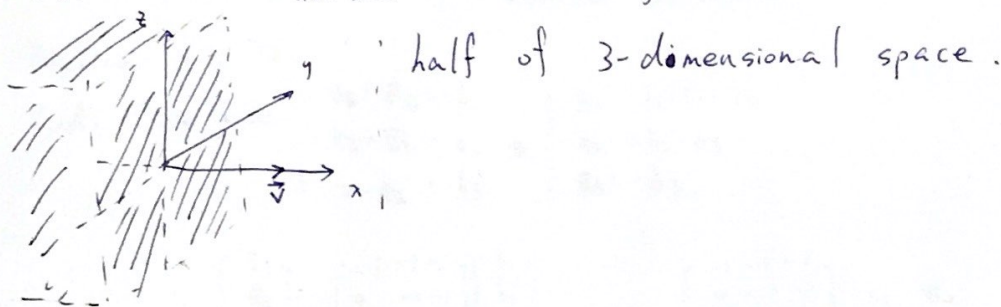 z
half of 3-dimensional space.
y
x
v⃗